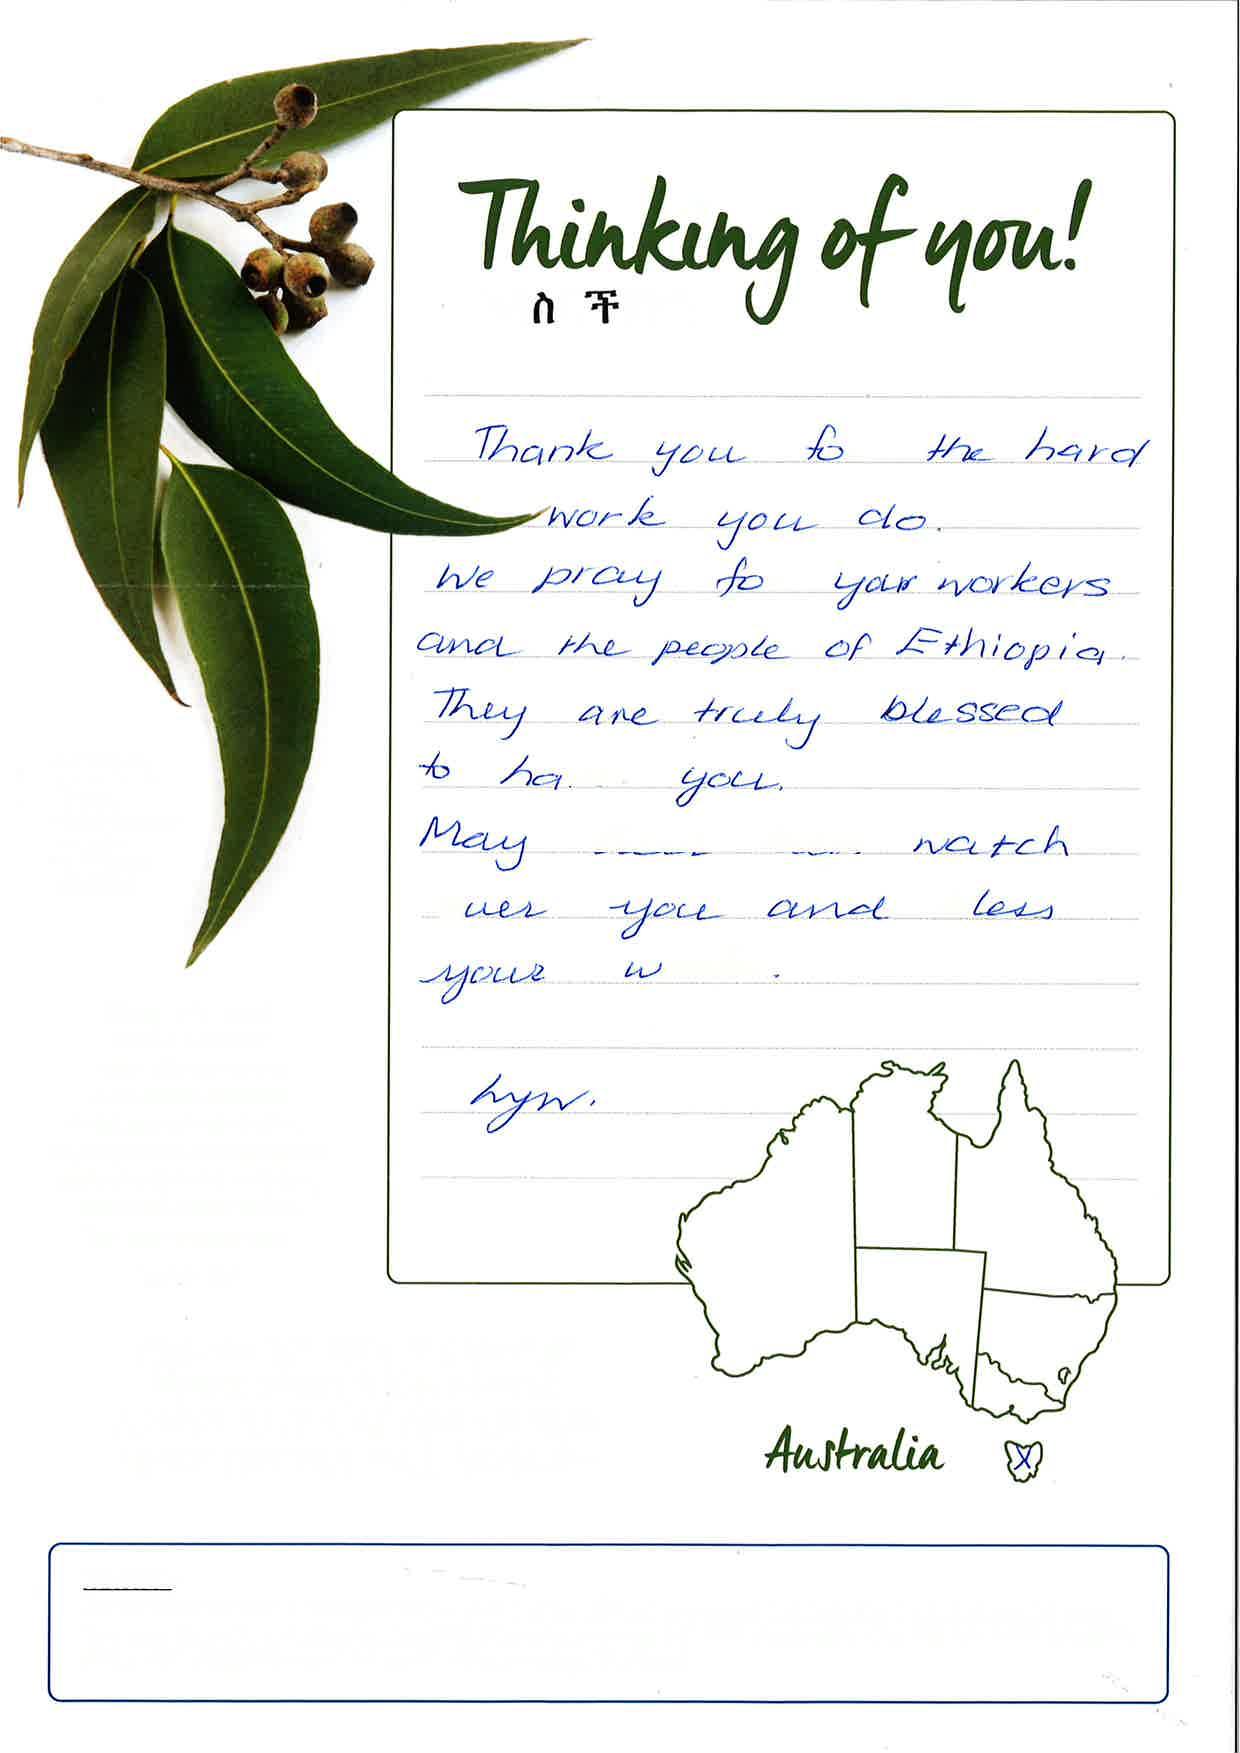 Thinking of you!
ስ ች
Thank you fo the hard
work you do.
We pray fo your workers
and the people of Ethiopia.
They are truly blessed
to ha you.
May watch
ver you and less
your w .
hyw.
Australia
X